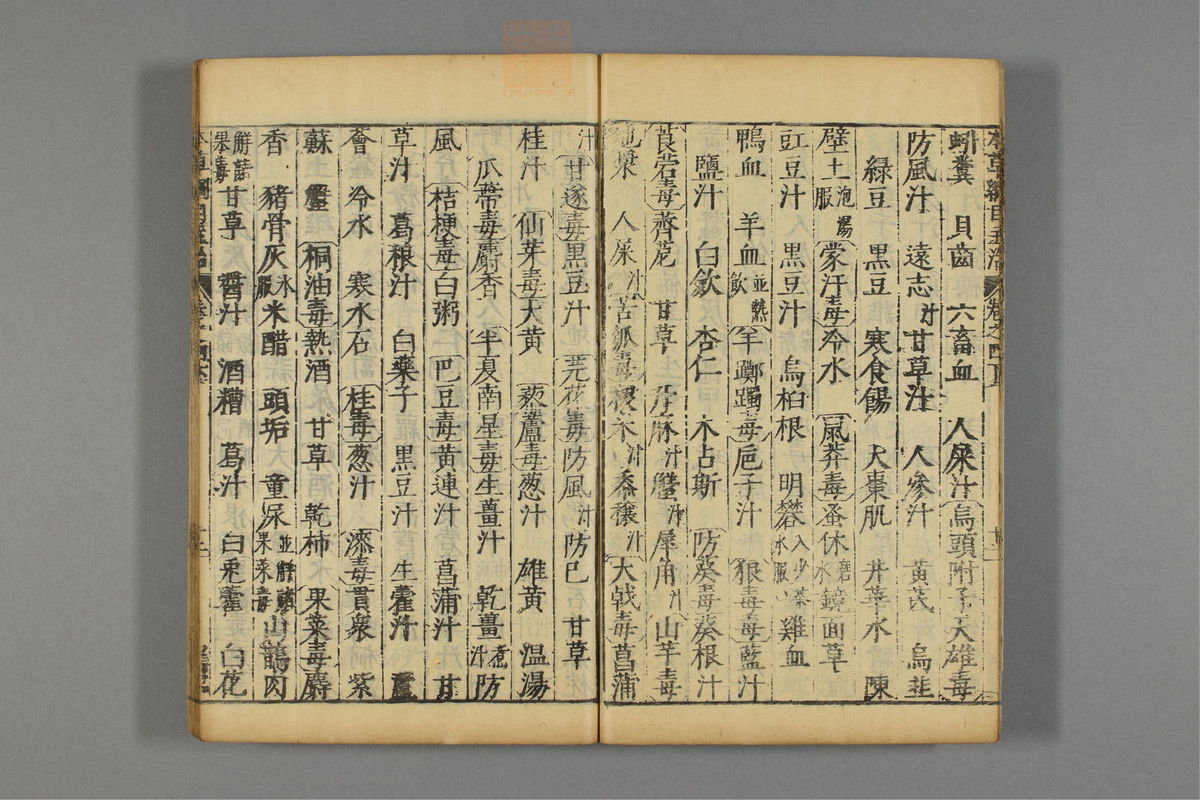 蚓糞 貝齒 六畜血 人屎汁 烏頭附子天雄毒
防風汁 遠志汁 甘草汁 人參汁 黃芪 烏韭
綠豆 黑豆 寒食餳 大棗肌 井華水 陳
壁土泡湯服 蒙汗毒冷水 鼠莽毒蚤休磨水 鏡面草
豇豆汁 黑豆汁 烏桕根 明礬入少茶水服 雞血
鴨血 羊血並熱飲 羊躑躅毒巵子汁 狼毒毒藍汁
鹽汁 白斂 杏仁 木占斯 防葵毒葵根汁
莨菪毒薺苨 甘草 升麻汁 蟹汁 犀角汁 山芋毒
地漿 人屎汁 苦瓠毒稷米汁 黍穰汁 大戟毒菖蒲
汁 甘遂毒黑豆汁 芫花毒防風汁 防巳 甘草
桂汁 仙茅毒大黃 藜蘆毒葱汁 雄黃 温湯
瓜蒂毒麝香 半夏南星毒生薑汁 乾薑煮汁 防
風 桔梗毒白粥 巴豆毒黃連汁 菖蒲汁 甘
草汁 葛根汁 白藥子 黑豆汁 生藿汁 蘆
薈 冷水 寒水石 桂毒葱汁 漆毒貫衆 紫
蘇 蟹 桐油毒熱酒 甘草 乾柿 果菜毒麝
香 豬骨灰水服 米醋 頭垢 童尿並解諸果菜毒 山鵲肉
解諸果毒 甘草 醬汁 酒糟 葛汁 白兎藿 白花